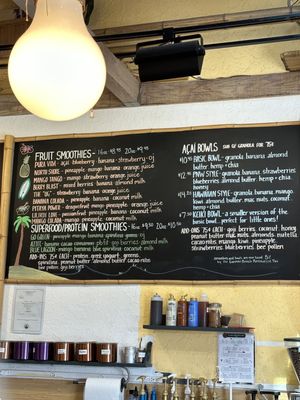 FRUIT SMOOTHIES - 16oz $8.95 20oz $9.95
PURA VIDA - açaí · blueberry · banana · strawberry · oj
NORTH SHORE - pineapple · mango · banana · orange juice
MANGO TANGO - mango · strawberry · banana · orange juice
BERRY BLAST - mixed berries · banana · almond milk
THE "OG" - strawberry · banana · orange juice
BANANA COLADA - banana · pineapple · coconut milk
PITAYA POWER - dragonfruit · mango · pineapple · orange juice
LILIKOI LOVE - passionfruit · pineapple · banana · coconut milk
MANGO COLADA - mango · banana · coconut milk
SUPERFOOD/PROTEIN SMOOTHIES - 16oz 20oz
GO GREEN - pineapple · mango · banana · spirulina · greens · oj
AZTEC - banana · cacao · cinnamon · pbtif · goji berries · almond milk
BLUE-MANGO - mango · banana · blue spirulina · coconut milk
ADD-INS 75¢ EACH - protein · greek yogurt · greens
spirulina · peanut butter · almond butter · cacao nibs
bee pollen · goji berries
AÇAÍ BOWLS
SUB GF GRANOLA FOR 75¢
BASIC BOWL - granola · banana · almond
butter · hemp + chia
PNW STYLE - granola · banana · strawberries
blueberries · almond butter · hemp + chia
honey
HAWAIIAN STYLE - granola · banana · mango
kiwi · almond butter · mac nuts · coconut
hemp + chia · honey
$7.95 KEIKI BOWL - a smaller version of the
basic bowl, perfect for little ones!
ADD-INS 75¢ EACH - goji berries · coconut · honey
peanut butter · mac nuts · almonds · nutella
cacao nibs · mango · kiwi · pineapple
strawberries · blueberries · bee pollen